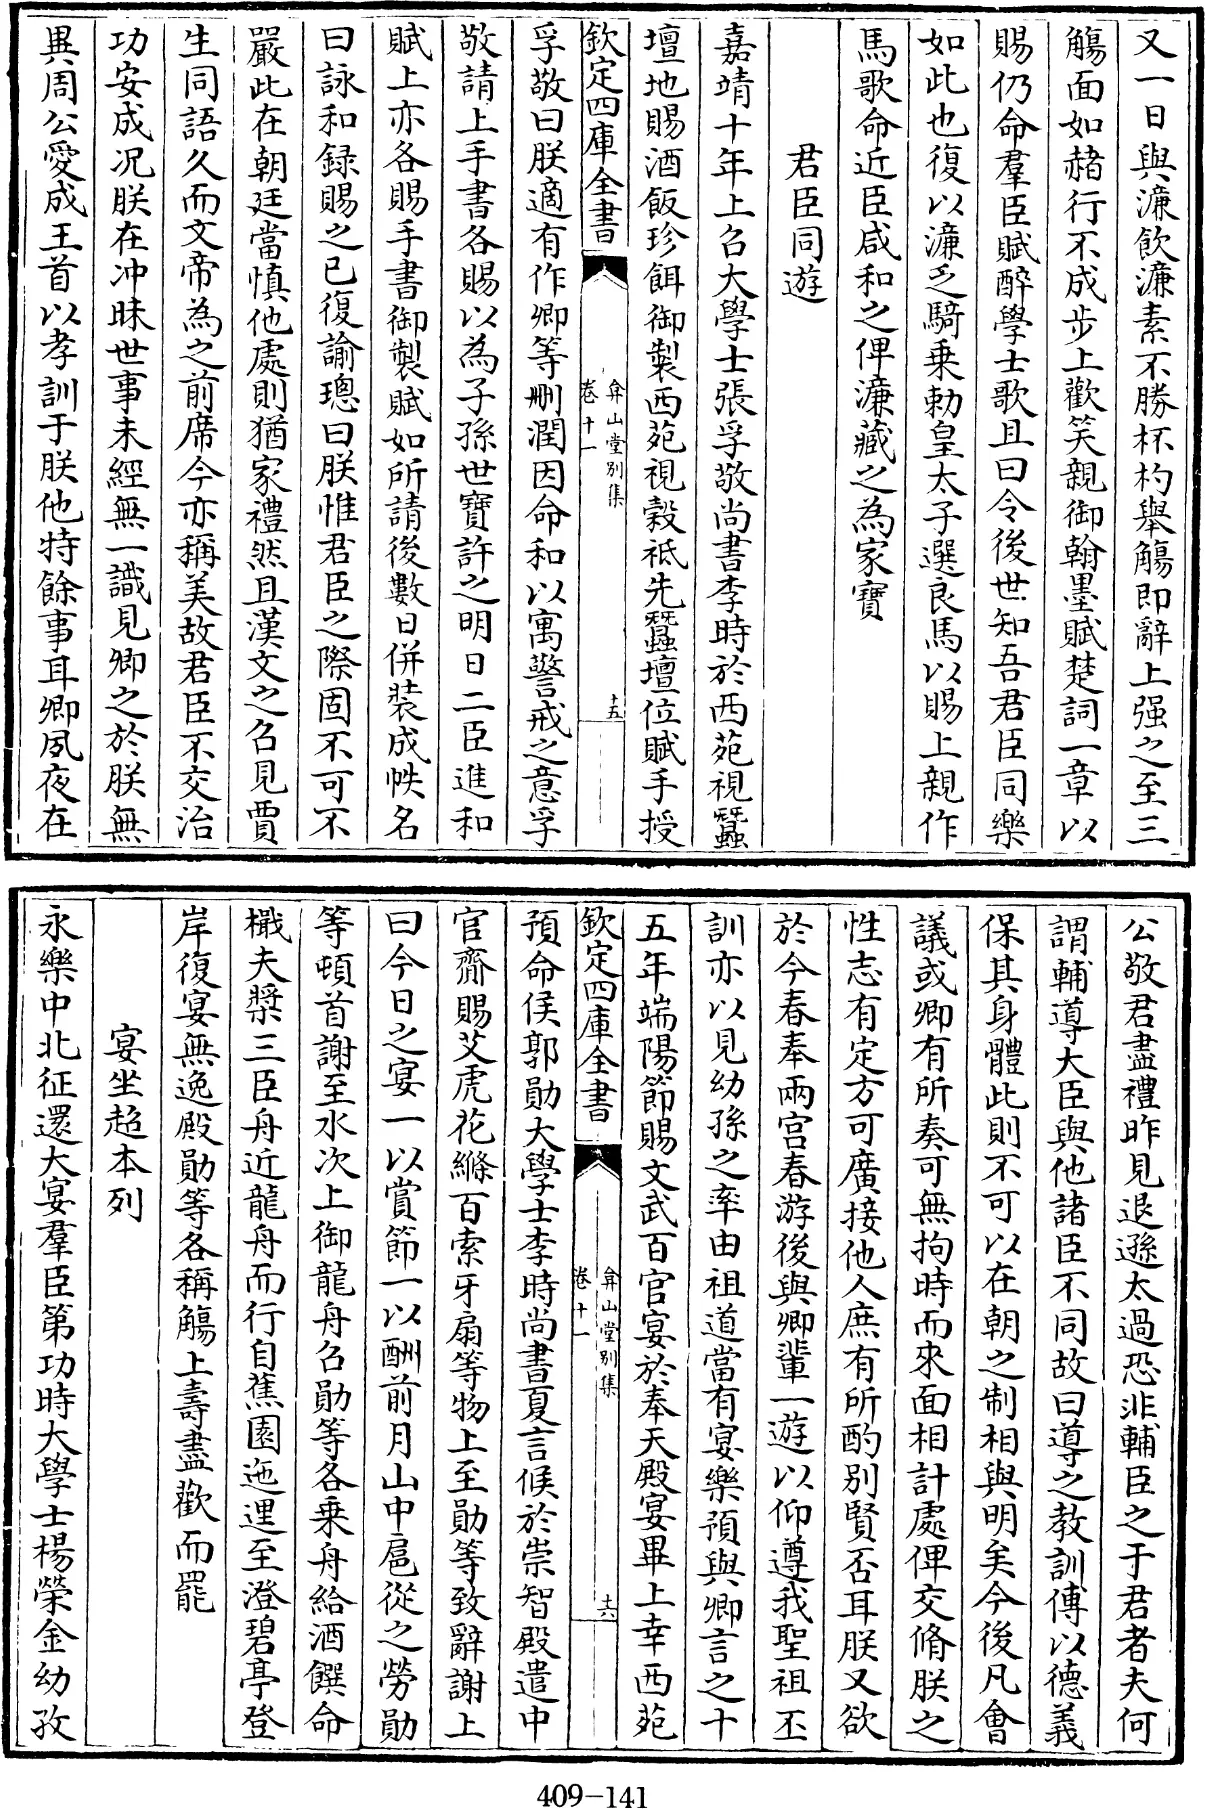 又一日與濂飲濂素不勝杯杓舉觴即辭上强之至三
觴面如赭行不成步上歡笑親御翰墨賦楚詞一章以
賜仍命羣臣賦醉學士歌且曰令後世知吾君臣同樂
如此也復以濂乏騎乗勅皇太子選良馬以賜上親作
馬歌命近臣咸和之俾濂藏之為家寶
君臣同遊
嘉靖十年上召大學士張孚敬尚書李時於西苑視蠶
壇地賜酒飯珍餌御製西苑視穀祗先蠶壇位賦手授
欽定四庫全書
弇山堂别集
卷十一
十五
孚敬曰朕適有作卿等刪潤因命和以寓警戒之意孚
敬請上手書各賜以為子孫世寶許之明日二臣進和
賦上亦各賜手書御製賦如所請後數日併裝成帙名
曰詠和録賜之已復諭璁曰朕惟君臣之際固不可不
嚴此在朝廷當慎他處則猶家禮然且漢文之召見賈
生同語久而文帝為之前席今亦稱美故君臣不交治
功安成况朕在冲昧世事未經無一識見卿之於朕無
異周公愛成王首以孝訓于朕他特餘事耳卿夙夜在
公敬君盡禮昨見退遜太過恐非輔臣之于君者夫何
謂輔導大臣與他諸臣不同故曰導之教訓傳以德義
保其身體此則不可以在朝之制相與明矣今後凡會
議或卿有所奏可無拘時而來面相計處俾交脩朕之
性志有定方可廣接他人庶有所酌别賢否耳朕又欲
於今春奉兩宫春游後與卿輩一遊以仰遵我聖祖丕
訓亦以見幼孫之率由祖道當有宴樂預與卿言之十
五年端陽節賜文武百官宴於奉天殿宴畢上幸西苑
欽定四庫全書
弇山堂别集
卷十一
十六
預命侯郭勛大學士李時尚書夏言候於崇智殿遣中
官齎賜艾虎花縧百索牙扇等物上至勛等致辭謝上
曰今日之宴一以賞節一以酬前月山中扈從之勞勛
等頓首謝至水次上御龍舟召勛等各乗舟給酒饌命
檝夫槳三臣舟近龍舟而行自蕉園迤逕至澄碧亭登
岸復宴無逸殿勛等各稱觴上壽盡歡而罷
宴坐超本列
永樂中北征還大宴羣臣第功時大學士楊榮金幼孜
409-141